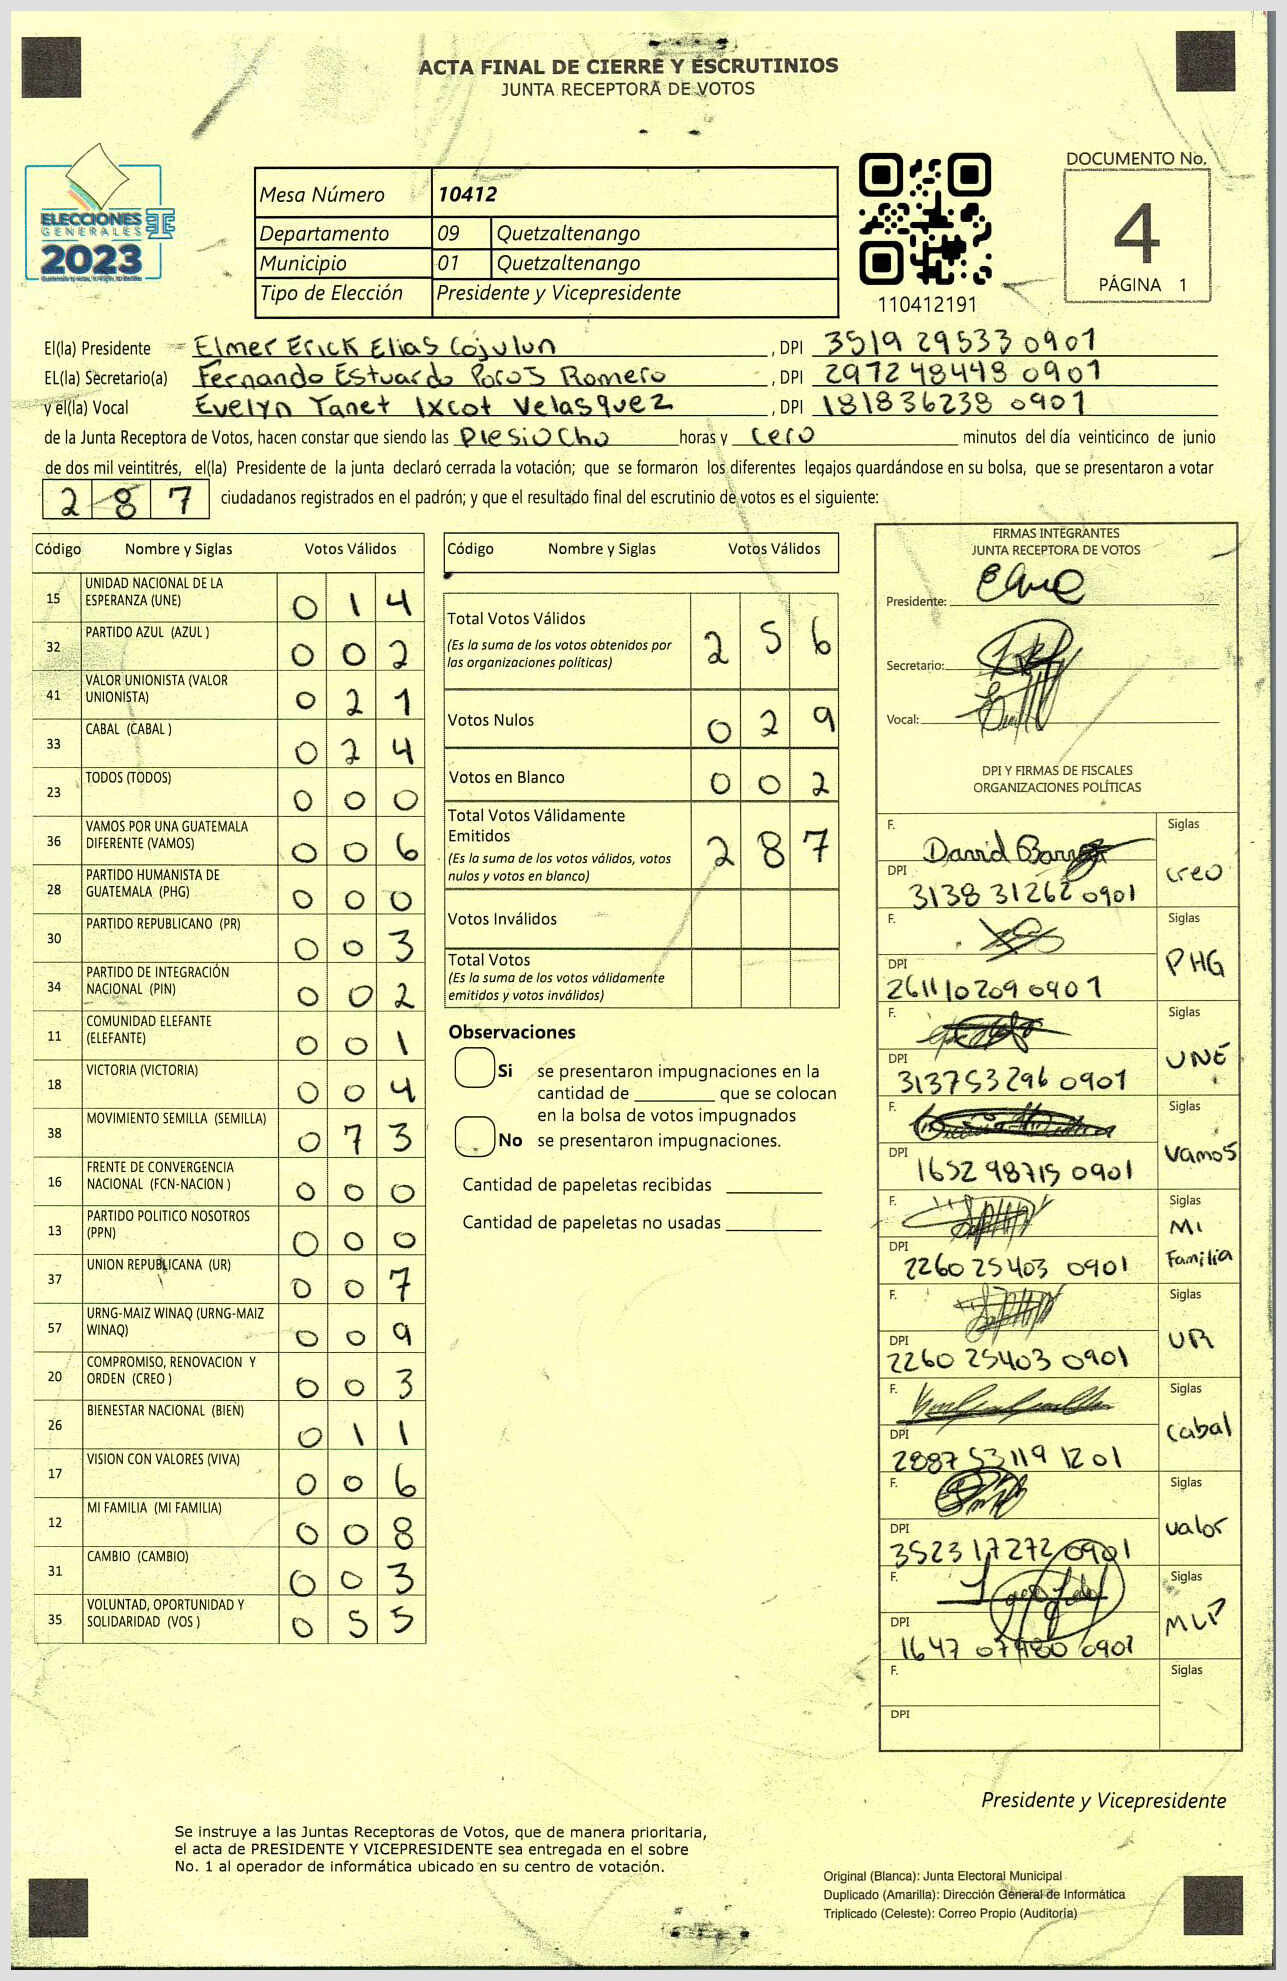 ACTA FINAL DE CIERRE Y ESCRUTINIOS
JUNTA RECEPTORA DE VOTOS
ELECCIONES
GENERALES
2023
Mesa Número 10412
Departamento 09 Quetzaltenango
Municipio 01 Quetzaltenango
Tipo de Elección Presidente y Vicepresidente
110412191
DOCUMENTO No.
4
PÁGINA 1
El(la) Presidente Elmer Erick Elias Cojulun, DPI 3519 29533 0901
EL(la) Secretario(a) Fernando Estuardo Poros Romero, DPI 2972 48448 0901
y el(la) Vocal Evelyn Yanet Ixcot Velasquez, DPI 181836238 0901
de la Junta Receptora de Votos, hacen constar que siendo las Diesiocho horas y cero minutos del día veinticinco de junio
de dos mil veintitrés, el(la) Presidente de la junta declaró cerrada la votación; que se formaron los diferentes legajos guardándose en su bolsa, que se presentaron a votar
287 ciudadanos registrados en el padrón; y que el resultado final del escrutinio de votos es el siguiente:
Código Nombre y Siglas Votos Válidos
15 UNIDAD NACIONAL DE LA ESPERANZA (UNE) 014
32 PARTIDO AZUL (AZUL ) 002
41 VALOR UNIONISTA (VALOR UNIONISTA) 021
33 CABAL (CABAL ) 024
23 TODOS (TODOS) 000
36 VAMOS POR UNA GUATEMALA DIFERENTE (VAMOS) 006
28 PARTIDO HUMANISTA DE GUATEMALA (PHG) 000
30 PARTIDO REPUBLICANO (PR) 003
34 PARTIDO DE INTEGRACIÓN NACIONAL (PIN) 002
11 COMUNIDAD ELEFANTE (ELEFANTE) 001
18 VICTORIA (VICTORIA) 004
38 MOVIMIENTO SEMILLA (SEMILLA) 073
16 FRENTE DE CONVERGENCIA NACIONAL (FCN-NACION ) 000
13 PARTIDO POLITICO NOSOTROS (PPN) 000
37 UNION REPUBLICANA (UR) 007
57 URNG-MAIZ WINAQ (URNG-MAIZ WINAQ) 009
20 COMPROMISO, RENOVACION Y ORDEN (CREO ) 003
26 BIENESTAR NACIONAL (BIEN) 011
17 VISION CON VALORES (VIVA) 006
12 MI FAMILIA (MI FAMILIA) 008
31 CAMBIO (CAMBIO) 003
35 VOLUNTAD, OPORTUNIDAD Y SOLIDARIDAD (VOS ) 055
Código Nombre y Siglas Votos Válidos
Total Votos Válidos 256
(Es la suma de los votos obtenidos por
las organizaciones políticas)
Votos Nulos 029
Votos en Blanco 002
Total Votos Válidamente
Emitidos 287
(Es la suma de los votos válidos, votos
nulos y votos en blanco)
Votos Inválidos
Total Votos
(Es la suma de los votos válidamente
emitidos y votos inválidos)
Observaciones
Si se presentaron impugnaciones en la
cantidad de ________ que se colocan
en la bolsa de votos impugnados
No se presentaron impugnaciones.
Cantidad de papeletas recibidas
Cantidad de papeletas no usadas
FIRMAS INTEGRANTES
JUNTA RECEPTORA DE VOTOS
Presidente:
Secretario:
Vocal:
DPI Y FIRMAS DE FISCALES
ORGANIZACIONES POLÍTICAS
F. David Siglas
DPI 3138 31262 0901 creo
F. Siglas
DPI 261110209 0901 PHG
F. Siglas
DPI 313753296 0901 UNE
F. Siglas
DPI 1652 98715 0901 Vamos
F. Siglas
DPI 2260 25403 0901 Mi Familia
F. Siglas
DPI 2260 25403 0901 UR
F. Siglas
DPI 2887 53119 1201 Cabal
F. Siglas
DPI 3523 17272 0901 valor
F. Siglas
DPI 1647 07480 0901 MLP
F. Siglas
DPI
Presidente y Vicepresidente
Se instruye a las Juntas Receptoras de Votos, que de manera prioritaria,
el acta de PRESIDENTE Y VICEPRESIDENTE sea entregada en el sobre
No. 1 al operador de informática ubicado en su centro de votación.
Original (Blanca): Junta Electoral Municipal
Duplicado (Amarilla): Dirección General de Informática
Triplicado (Celeste): Correo Propio (Auditoría)